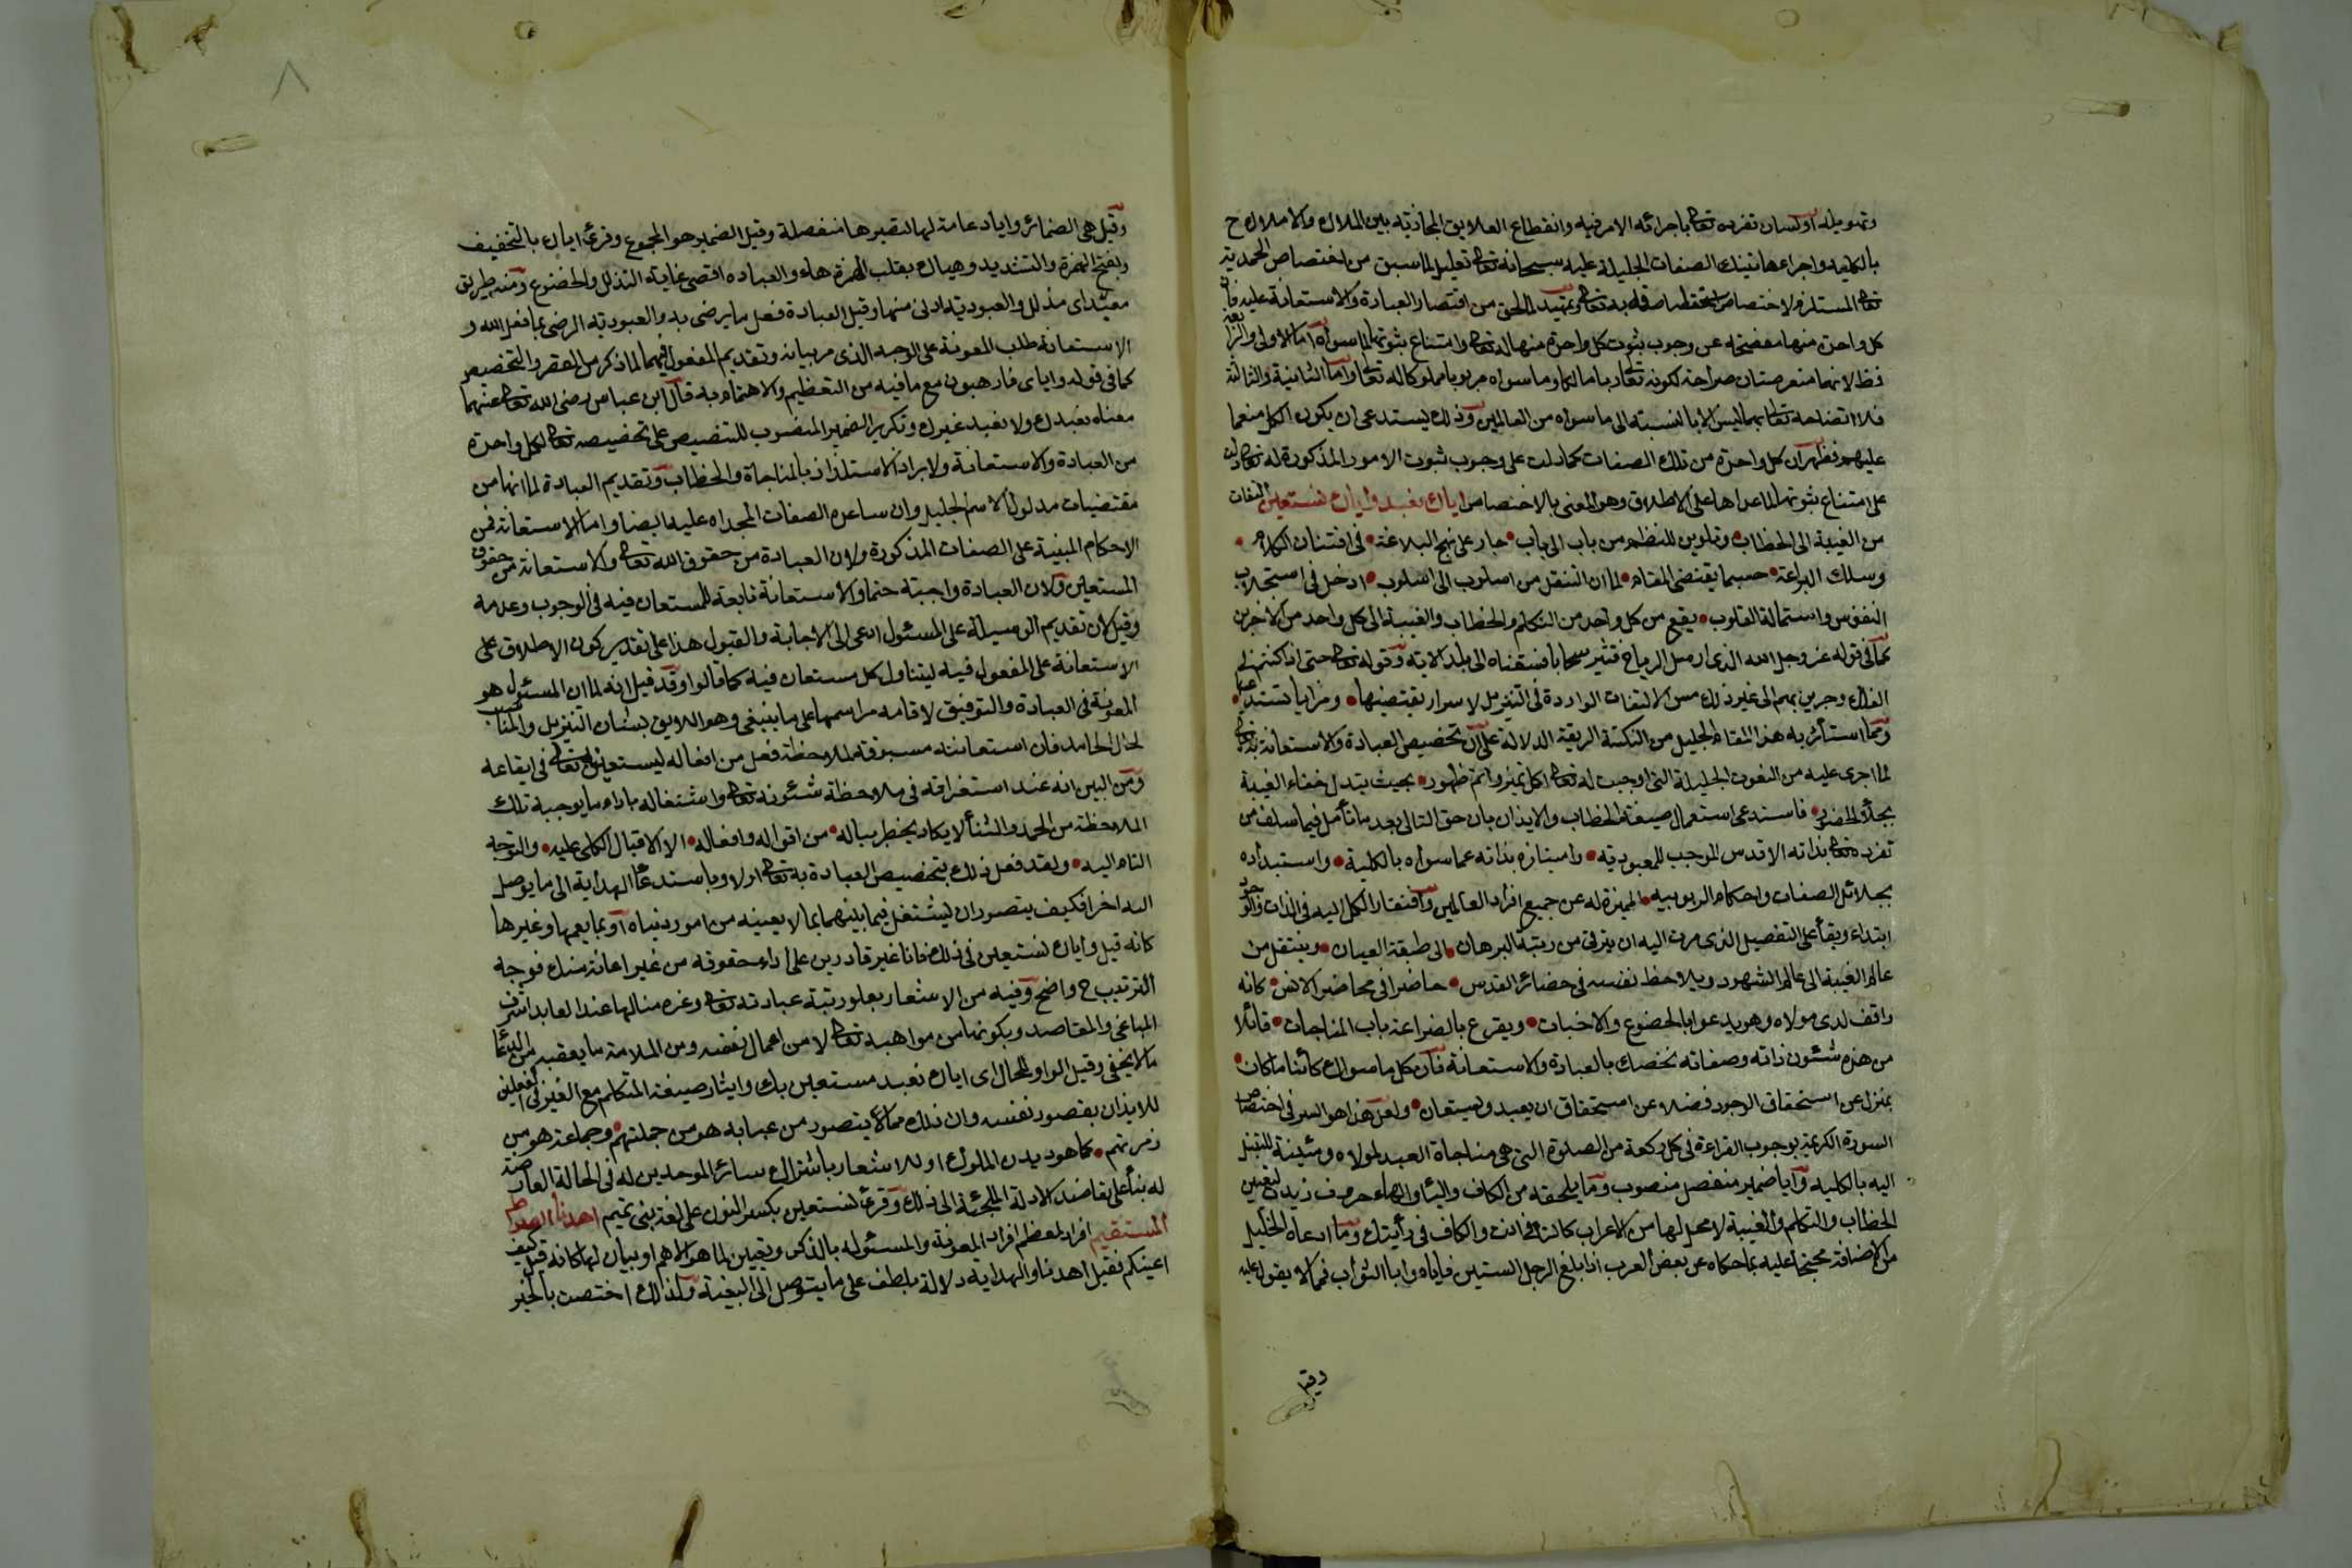 وتهويله او لبيان تفرده تعالى باجرائه الامر فيه وانقطاع العلايق المجازية بين الملاك والاملاك ح
بالكلية واجراء هاتيك الصفات الجليلة عليه سبحانه تعالى تعليل لما سبق من اختصاص الحمد به
تعالى المستلزم لاختصاص استحقاقه به تعالى وتمهيد لما لحق من اقتصار العبادة والاستعانة عليه فان
كل واحدة منها مفصحة عن وجوب ثبوت كل واحدة منها له تعالى وامتناع ثبوتها لما سواه اما الاولى والرابعة
فظ لانهما متعرضتان صراحة لكونه تعالى ربا مالكا وما سواه مربوبا مملوكا له تعالى واما الثانية والثالثة
فلان اتصافه تعالى بهما ليس الا بالنسبة الى ما سواه من العالمين وذلك يستدعى ان يكون الكل منعما
عليهم فظهر ان كل واحدة من تلك الصفات كما دلت على وجوب ثبوت الامور المذكورة له تعالى دلت
على امتناع ثبوتها لما عداها على الاطلاق وهو المعنى بالاختصاص اياك نعبد واياك نستعين التفات
من الغيبة الى الخطاب وتلوين للنظم من باب الى باب جار على نهج البلاغة فى افتنان الكلام
ومسلك البراعة حسبما يقتضى المقام لما ان التنقل من اسلوب الى اسلوب ادخل فى استجلاب
النفوس واستمالة القلوب يقع من كل واحد من التكلم والخطاب والغيبة الى كل واحد من الاخرين
كما فى قوله عز وجل الله الذى ارسل الرياح فتثير سحابا فسقناه الى بلد الاية وقوله تعالى حتى اذا كنتم فى
الفلك وجرين بهم الى غير ذلك من الالتفات الواردة فى التنزيل لاسرار يقتضيها ومزايا تستدعيها
ومما استأثر به هذا المقام الجليل من النكتة الريقة الدلالة على ان تخصيص العبادة والاستعانة به تعالى
لما اجرى عليه من النعوت الجليلة التى اوجبت له تعالى اكل تميز واتم ظهور بحيث تبدل خفاء الغيبة
بجلاء الحضور فاستدعى استعمال صيغة الخطاب والايذان بان حق التالى بعد ما تأمل فيما سلف من
تفرده تعالى بذاته الاقدس الموجب للمعبودية وامتيازه بذاته عما سواه بالكلية واستبداده
بجلائل الصفات واحكام الربوبيه المميزة له عن جميع افراد العالمين وافتقار الكل اليه فى الذات والوجود
ابتداء وبقأ على التفصيل الذى مرت اليه ان يترقى من ربتة البرهان الى طبقة العيان وينتقل من
عالم الغيبة الى عالم الشهود ويلاحظ نفسه فى حضائر القدس حاضرا فى محاضر الانس كانه
واقف لدى مولاه وهو يدعو بالخضوع والاخبات ويقرع بالضراعة باب المناجات قائلا
من هذه شئون ذاته وصفاته نخصك بالعبادة والاستعانة فان كل ما سواك كائنا ما كان
بمنزل عن استحقاق الوجود فضلا عن استحقاق ان يعبد ويستعان ولعل هذا هو السر فى اختصاص
السورة الكريمة بوجوب القراءة فى كل ركعة من الصلوة التى هى مناجاة العبد لمولاه ومئينة للتبتل
اليه بالكليه وايا ضمير منفصل منصوب وما يلحقه من الكاف واليأ والهاء حروف زيدت لتعيين
الخطاب والتكلم والغيبة لا محل لها من الاعراب كالتاء فى انت والكاف فى رأيتك وما ادعاه الخليل
من الاضافة محتجا عليه بما حكاه عن بعض العرب اذا بلغ الرجل الستين فاياه وايا الشواب فمما لا يعول عليه
وقيل
وقيل هى الضمائر وايا دعامة لها لتصيرها منفصلة وقيل الضمير هو المجموع وقرئ اياك بالتخفيف
وبفتح الهمزة والتشديد وهياك بقلب الهمزة هاء والعباده اقصى غاية التذلل والخضوع ومنه طريق
معبد اى مذلل والعبودية ادنى منها وقيل العبادة فعل ما يرضى به والعبودية الرضى بما فعل الله و
الاستعانة طلب المعونة على الوجه الذى مر بيانه وتقديم المفعول فيهما لما ذكر من القصر والتخصيص
كما فى قوله واياى فارهبون مع ما فيه من التعظيم والاهتمام به قال ابن عباس رضى الله تعالى عنهما
معناه نعبدك ولا نعبد غيرك وتكرير الضمير المنصوب للتنصيص على تخصيصه تعالى لكل واحدة
من العبادة والاستعانة ولابراز الاستلذاذ بالمناجاة والخطاب وتقديم العبادة لما انها من
مقتضيات مدلول الاسم الجليل وان ساعده الصفات المجراه عليه ايضا واما الاستعانة فمن
الاحكام المبنية على الصفات المذكورة ولان العبادة من حقوق الله تعالى والاستعانة من حقوق
المستعين ولان العبادة واجبة حتما والاستعانة تابعة للمستعان فيه فى الوجوب وعدمه
وقيل لان تقديم الوسيلة على المسئول ادعى الى الاجابة والقبول هذا على تقدير كون الاطلاق على
الاستعانة على المفعول فيه ليتناول كل مستعان فيه كما قالوا وقد قيل انه لما ان المسئول هو
المعونة فى العبادة والتوفيق لاقامه مراسمها على ما ينبغى وهو اللايق بشان التنزيل والمناسب
لحال الحامد فان استعانته مسبوقة لملاحظة فعل من افعاله ليستعينه تعالى فى ايقاعه
ومن البين انه عند استغراقه فى ملاحظة شئونه تعالى واشتغاله باداء ما يوجبه تلك
الملاحظة من الحمد والثنأ لا يكاد يخطر بباله من اقواله وافعاله الا الاقبال الكلى عليه والتوجه
التام اليه ولقد فعل ذلك بتخصيص العبادة به تعالى اولا وباستدعأ الهداية الى ما يوصل
اليه اخرا فكيف يتصور ان يشتغل فيما بينهما بما لا يعنيه من امور دنياه او بما يعمها وغيرها
كانه قيل واياك نستعين فى ذلك فانا غير قادرين على اداء حقوقه من غير اعانة منك فوجه
الترتيب ح واضح وفيه من الاشعار بعلو رتبة عبادته تعالى وعزه منالها عند العابد اشرف
المباغى والمقاصد وبكونها من مواهبه تعالى لا من اعمال نفسه ومن الملامة ما يعقبه من الدعأ
ما لا يخفى وقيل الواو للحال اى اياك نعبد مستعينين بك وايثار صيغة المتكلم مع الغير فى الفعلين
للايذان بقصور نفسه وان ذلك مما لا يتصور من عبابه هو من جملتهم وجماعة هو من
زمرتهم كما هو ديدن الملوك او للاشعار باشتراك سائر الموحدين له فى الحالة العارضة
له بنأ على تعاضد الادلة الملجئة الى ذلك وقرئ نستعين بكسر النون على لغة بنى تميم اهدنا الصراط
المستقيم افراد لمعظم افراد المعونة والمسئوله بالذكر وتعيين لما هو الاهم او بيان لها كانه قيل كيف
اعينكم فقيل اهدنا والهداية دلالة بلطف على ما يتوصل الى البغية ولذلك اختصت بالخير